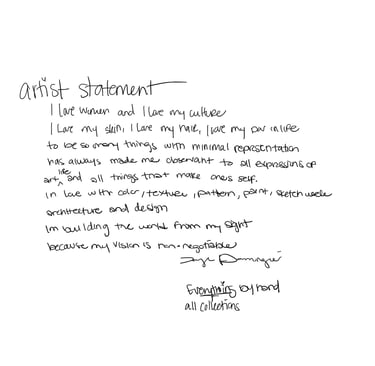 artist statement
I love women and I love my culture
I love my skin, I love my hair, I love my in life
to be so many things with minimal representation
has always made me observant to all expressions of
art, life and all things that make ones self.
in love with color, texture, pattern, paint, sketch work
architecture and design
Im building the world from my sight
because my vision is non-negotiable
Everything by hand
all collections